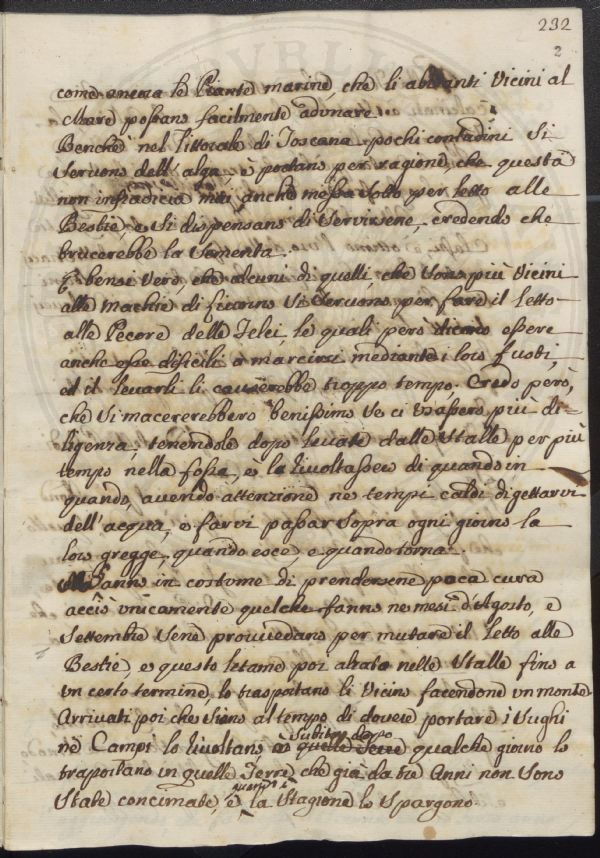 232
2
come ancora le Piante marine, che li abitanti Vicini al
Mare possano facilmente adunare.
Benchè nel littorale di Toscana pochi contadini Si
Servono dell'alga, e portano per ragione, che questa
non infradicia mai, anche messa Sotto per letto alle
Bestie, e Si dispensano di Servirsene, credendo che
brucerebbe la Sementa.
È bensi Vero che alcuni di quelli, che Sono più Vicini
alle Machie di Si Servono per fare il letto
alle Pecore delle Felci, le quali però dicono essere
anche esse dificili a marcirsi mediante i loro fusti,
ed il levarli li causerebbe troppo tempo. Credo però,
che Si macererebbero benissimo Se ci Usassero più di=
ligenza, tenendole dopo levate dalle Stalle per più
tempo nella fossa, e le di quando in
quando, avendo attenzione ne tempi caldi di gettarvi
dell'acqua, e farvi passar Sopra ogni giorno la
loro gregge, quando esce, e quando torna.
Anno in costume di prendersene poca cura
acciò Unicamente qualche fanno ne mesi d'Agosto, e
Settembre Sene provvedano per mutare il letto alle
Bestie, e questo letame poi alzato nelle Stalle fino a
Un certo termine, lo trasportano li Vicino facendone Un monte
Arrivati poi che Siano al tempo di dovere portare i Sughi
nè Campi lo rivoltano, e Subito dopo qualche giorno lo
trasportano in quelle Terre che già da tre Anni non Sono
State concimate, e la Stagione lo Spargono